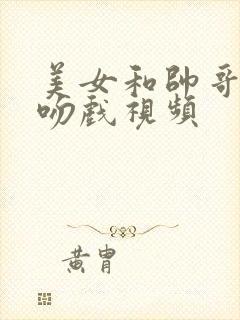 美女和帥哥
吻戲視頻
黃胄